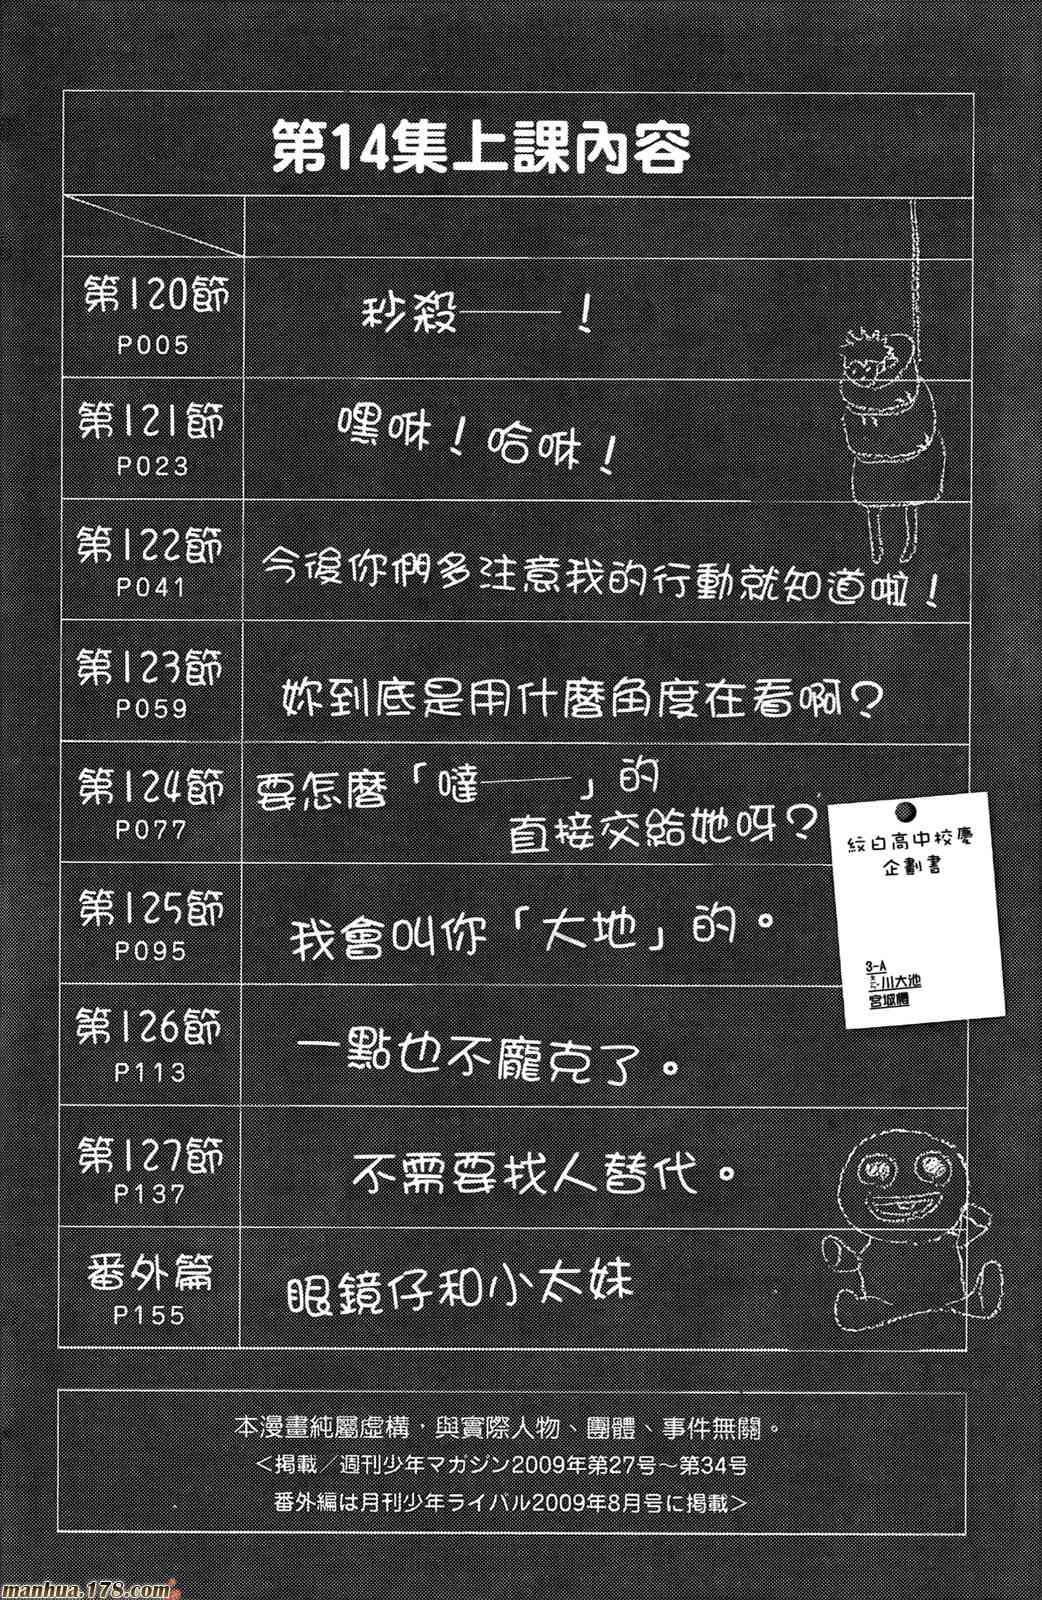 第14集上課內容
第120節
P005
秒殺——！
第121節
P023
嘿咻！哈咻！
第122節
P041
今後你們多注意我的行動就知道啦！
第123節
P059
妳到底是用什麼角度在看啊？
第124節
P077
要怎麼「噠——」的
直接交給她呀？
紋白高中校慶
企劃書
3-A
川大池
第125節
P095
我會叫你「大地」的。
第126節
P113
一點也不龐克了。
第127節
P137
不需要找人替代。
番外篇
P155
眼鏡仔和小太妹
本漫畫純屬虛構，與實際人物、團體、事件無關。
＜掲載／週刊少年マガジン2009年第27号～第34号
番外編は月刊少年ライバル2009年8月号に掲載＞
manhua.178.com